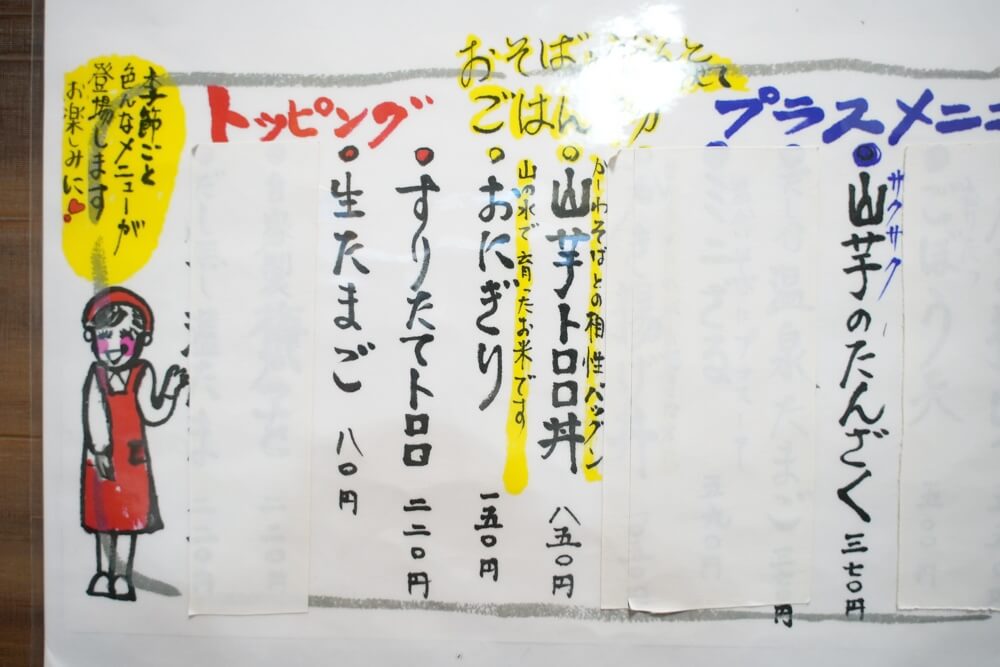 プラスメニュ
サクサク
山芋のたんざく 三七〇円
円
おそば
ごはん
かーわそばとの相性バツグン
山芋トロロ丼 八五〇円
山の水で育ったお米です
おにぎり 一五〇円
トッピング
すりたてトロロ 二二〇円
生たまご 八〇円
季節ごと
色んなメニューが
登場します
お楽しみに